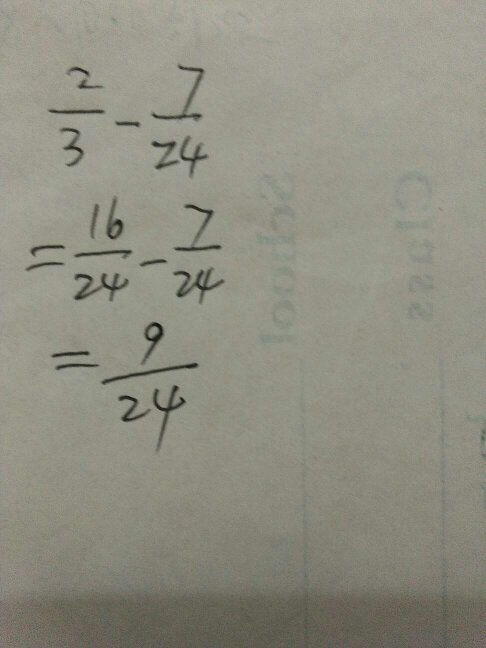 2/3 - 7/24
= 16/24 - 7/24
= 9/24
School
Class